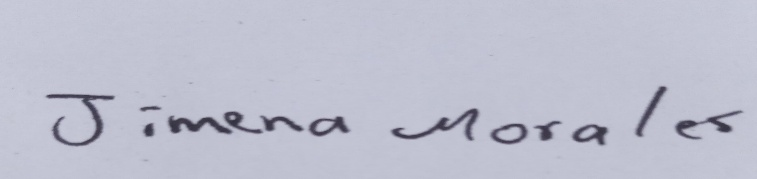 Jimena Morales